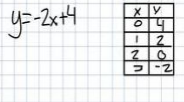 y=-2x+4
x y
0 4
1 2
2 0
3 -2